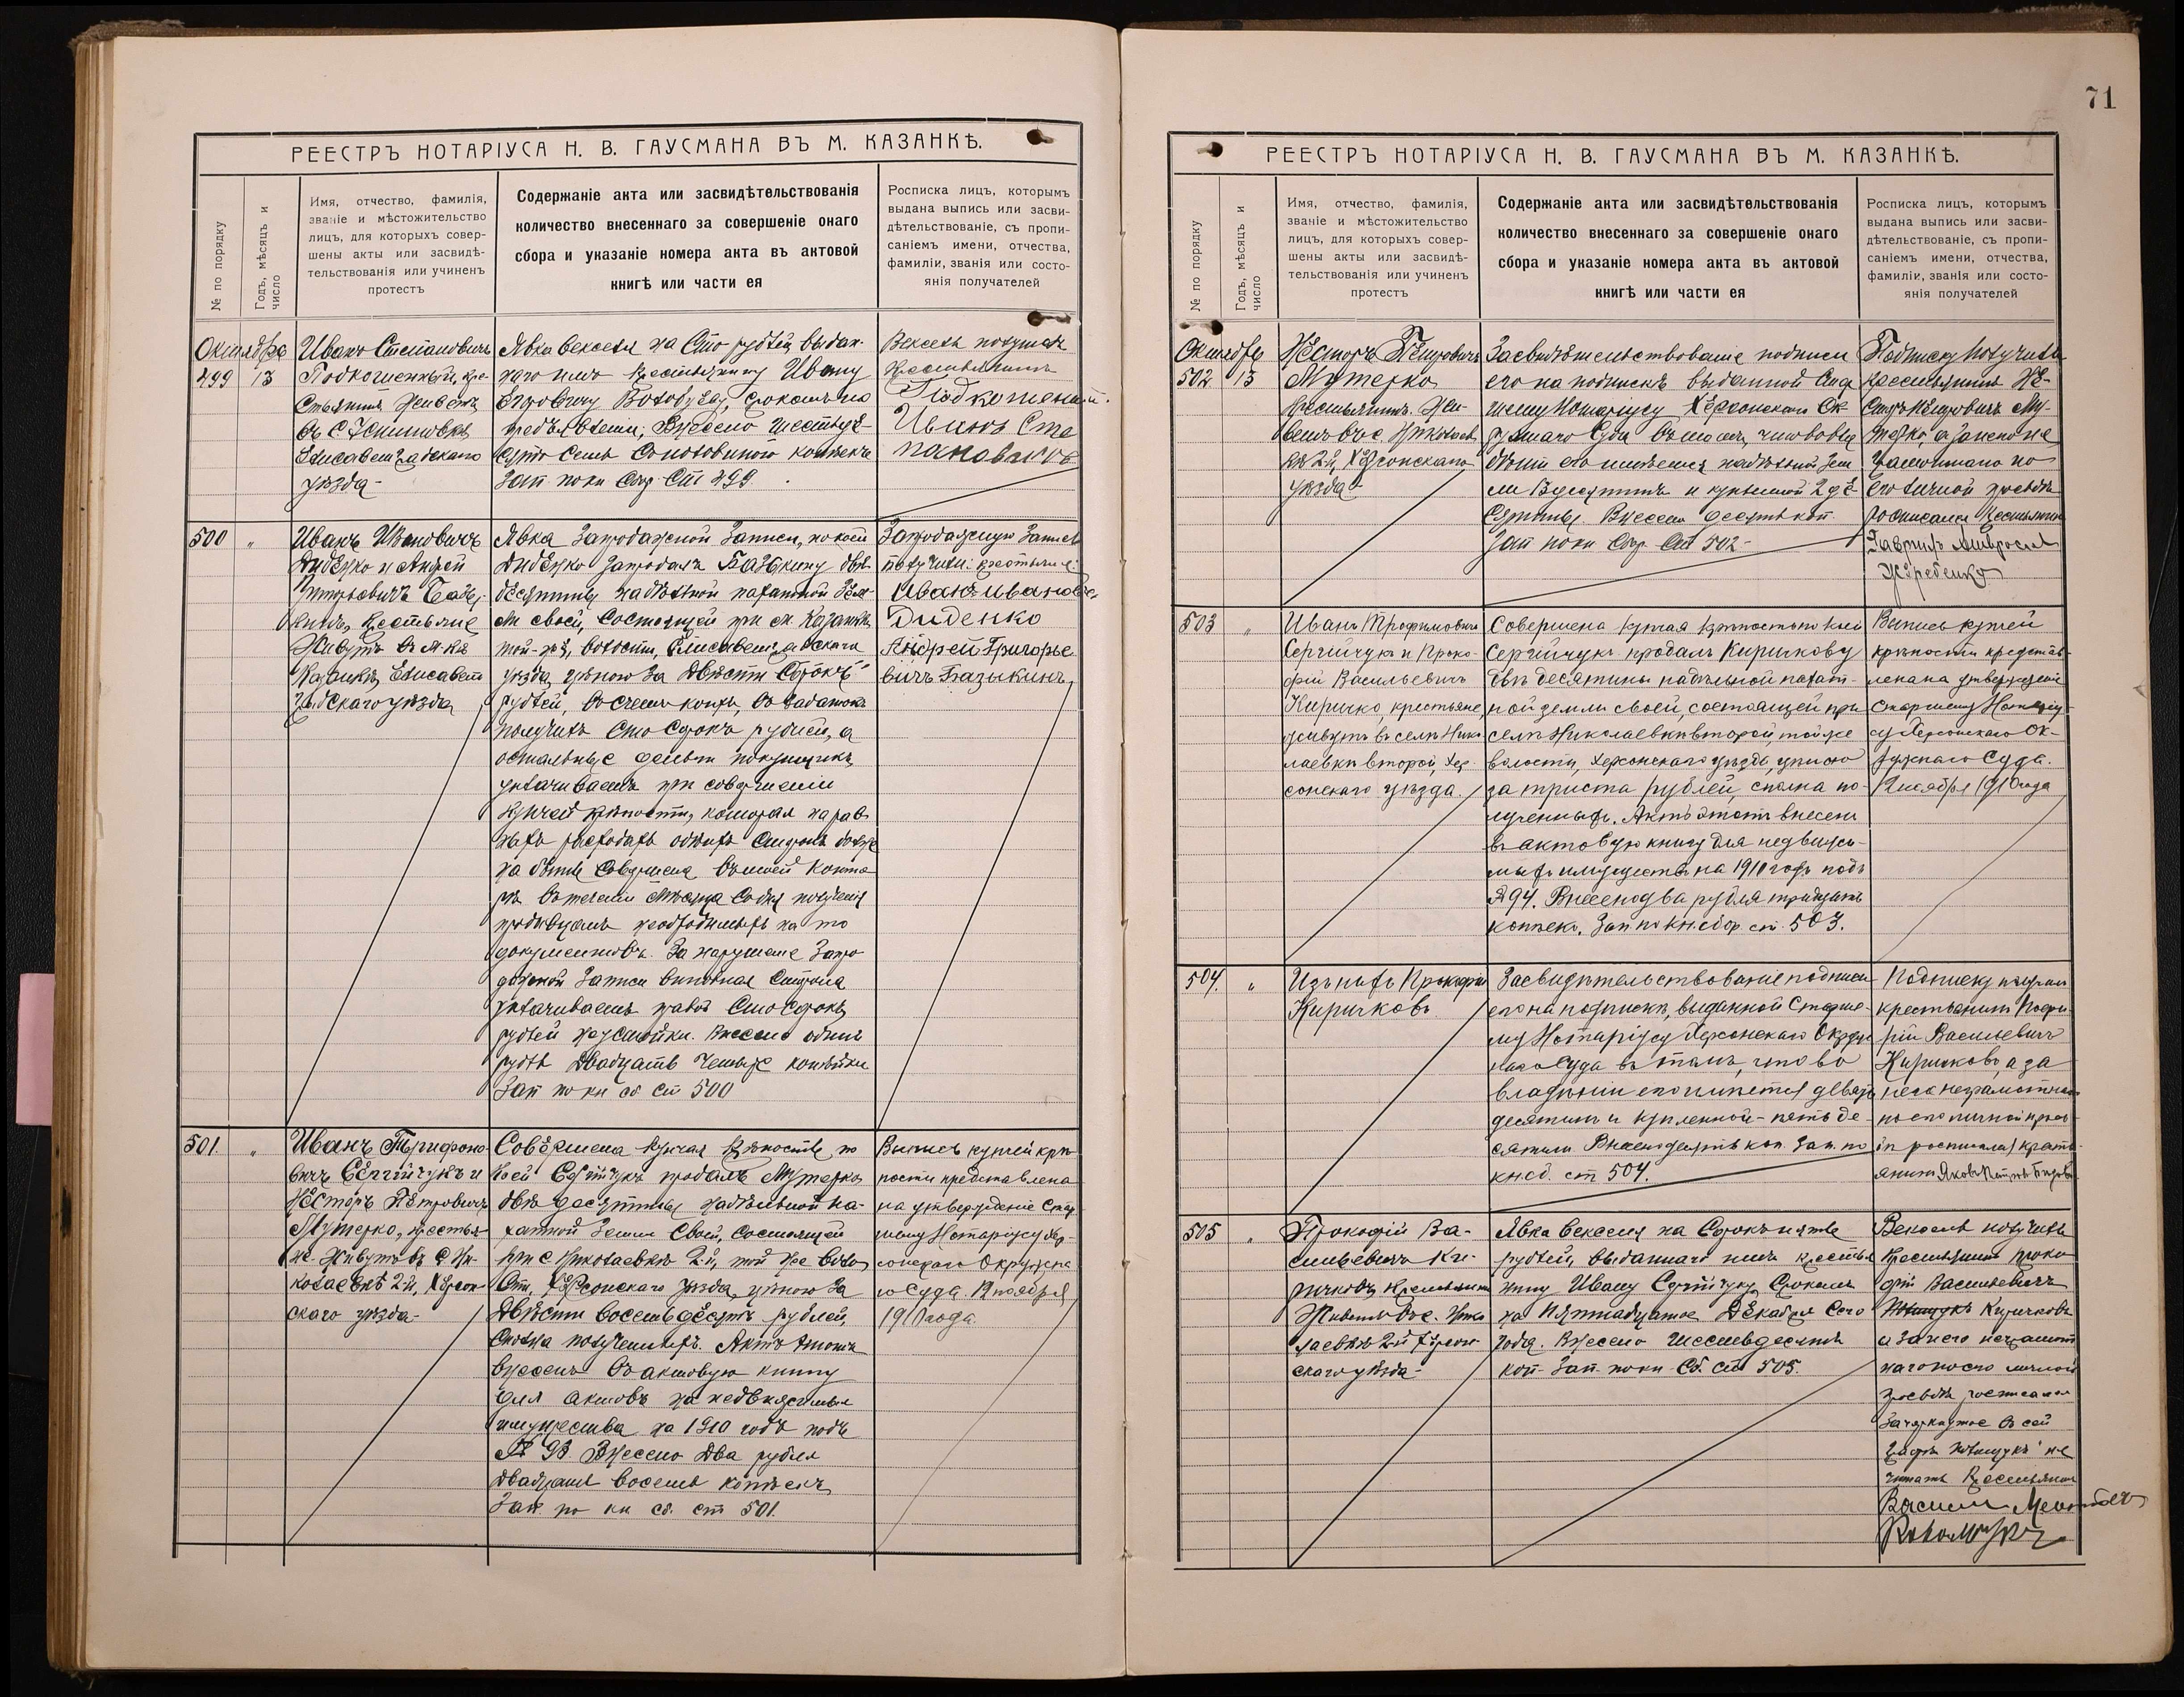 РЕЕСТРЪ НОТАРІУСА Н. В. ГАУСМАНА ВЪ М. КАЗАНКѢ.
№ по порядку
Годъ, мѣсяцъ и число
Имя, отчество, фамилія,
званіе и мѣстожительство
лицъ, для которыхъ совер-
шены акты или засвидѣ-
тельствованія или учиненъ
протестъ
Содержаніе акта или засвидѣтельствованія
количество внесеннаго за совершеніе онаго
сбора и указаніе номера акта въ актовой
книгѣ или части ея
Росписка лицъ, которымъ
выдана выпись или засви-
дѣтельствованіе, съ пропи-
саніемъ имени, отчества,
фамиліи, званія или состо-
янія получателей
Октября
499 13
Иванъ Степановичъ
кре-
стьянинъ живетъ
въ с.
Елисаветградскаго
уѣзда
Явка векселя на Сто рублей выдан-
наго имъ крестьянину Ивану
срокомъ по
предъявленіи, Внесено шестьде-
сятъ семь съ половиною копѣекъ
Зап. по кн Сбор. Ст 499
Вексель получилъ
Крестьянинъ
Иванъ Сте
пановичъ
500 "
Иванъ Ивановичъ
Диденко и Андрей
Григорьевичъ Базы-
кинъ, Крестьяне
Живутъ въ м-кѣ
Казанкѣ, Елисавет-
градскаго уѣзда
Явка Запродажной Записи, по коей
Диденко запродалъ Базыкину двѣ
десятины надѣльной пахатной зем-
ли своей, состоящей при м. Казанкѣ,
той-же, волости, Елисаветградскаго
уѣзда, цѣною за Двѣсти Сорокъ
рублей, въ счетъ коихъ, въ задатокъ
получилъ Сто Сорокъ рублей, а
остальныя деньги покупщикъ
уплачиваетъ при совершеніи
Купчей крѣпости, которая на рав-
ныхъ расходахъ обѣихъ Сторонъ должна
быть Совершена въ моей Конто-
рѣ въ теченіи мѣсяца со дня полученія
продавцомъ необходимыхъ на то
документовъ. За нарушеніе Запро-
дажной Записи виновная Сторона
уплачиваетъ правой Сто Сорокъ
рублей неустойки. Внесено одинъ
рубль Двадцать Четыре копѣйки
Зап по кн сб ст 500
Запродажную Запись
получили: крестьяне:
Иванъ Иванович
Диденко
Андрей Григорье
вичъ Базыкинъ
501. "
Иванъ Трифоно-
вичъ Сергійчукъ и
Несторъ Петровичъ
Мутерко, крестья-
не. Живутъ въ с. Ни-
колаевкѣ 2-й, Херсон-
скаго уѣзда
Совершена Купчая Крѣпость, по
коей Сергійчукъ продалъ Мутерко
двѣ десятины надѣльной па-
хатной Земли своей, состоящей
при с. Николаевкѣ 2-й, той же воло-
сти, Херсонскаго уѣзда, цѣною за
Двѣсти восемьдесятъ рублей,
Сполна полученныхъ. Актъ этотъ
внесенъ въ актовую книгу
для актовъ на недвижимыя
имущества на 1910 годъ подъ
№ 93 Внесено Два рубля
двадцать восемь копѣекъ
Зап. по кн сб. ст 501.
Выпись купчей крѣ-
пости представлена
на утвержденіе Стар-
шему Нотаріусу Хер-
сонскаго Окружна-
го Суда. 12 ноября
1910 года
71
РЕЕСТРЪ НОТАРІУСА Н. В. ГАУСМАНА ВЪ М. КАЗАНКѢ.
№ по порядку
Годъ, мѣсяцъ и число
Имя, отчество, фамилія,
званіе и мѣстожительство
лицъ, для которыхъ совер-
шены акты или засвидѣ-
тельствованія или учиненъ
протестъ
Содержаніе акта или засвидѣтельствованія
количество внесеннаго за совершеніе онаго
сбора и указаніе номера акта въ актовой
книгѣ или части ея
Росписка лицъ, которымъ
выдана выпись или засви-
дѣтельствованіе, съ пропи-
саніемъ имени, отчества,
фамиліи, званія или состо-
янія получателей
Октября
502 13
Несторъ Петровичъ
Мутерко
Крестьянинъ. Жи-
ветъ въ с. Николаев-
кѣ 2-й, Херсонскаго
уѣзда
Засвидѣтельствованіе подписи
его на подпискѣ выданной Стар-
шему Нотаріусу Херсонскаго Ок-
ружнаго Суда въ томъ, что во вла-
дѣніи его имѣется надѣльной зем-
ли 8 десятинъ и купленной 2 де-
сятины. Внесено десять коп.
Зап по кн Сбор. Ст 502
Подписку получилъ
крестьянинъ Не-
сторъ Петровичъ Му-
терко, а за него не
грамотнаго по
его личной просьбѣ
росписался Крестьянинъ
Гаврилъ
Жеребенко
503 "
Иванъ Трофимовичъ
Сергійчукъ и Проко-
фій Васильевичъ
Киричко, крестьяне,
живутъ въ селѣ Нико-
лаевкѣ второй, Хер-
сонскаго уѣзда.
Совершена купчая крѣпость по коей
Сергійчукъ продалъ Киричкову
двѣ десятины надѣльной пахат-
ной земли своей, состоящей при
селѣ Николаевкѣ второй, той же
волости, Херсонскаго уѣзда, цѣною
за триста рублей, сполна по-
лученныхъ. Актъ этотъ внесенъ
въ актовую книгу для недвижи-
мыхъ имуществъ на 1910 годъ подъ
№ 94. Внесено два рубля тридцать
копѣекъ. Зап по кн. сбор. ст. 503.
Выпись купчей
крѣпости представ-
лена на утвержденіе
Старшему Нотаріу-
су Херсонскаго Ок-
ружнаго Суда.
12 ноября 1910 года
504. "
Изъ нихъ Прокофій
Киричковъ
Засвидѣтельствованіе подписи
его на подпискѣ, выданной Старше-
му Нотаріусу Херсонскаго Окруж-
наго Суда въ томъ, что во
владѣніи его имѣется девять
десятинъ и купленной - пять де-
сятинъ Внесено десять коп. Зап. по
кн сб. ст 504.
Подписку получилъ
крестьянинъ Проко-
фій Васильевичъ
Киричковъ, а за
него неграмотнаго
по его личной прось-
бѣ росписался крестья-
янинъ Яковъ
505 "
Прокофій Ва-
сильевичъ Ки-
ричковъ, Крестьянинъ
Живетъ въ с. Нико-
лаевкѣ 2-й Херсон-
скаго уѣзда
Явка векселя на Сорокъ пять
рублей, выданнаго имъ крестья-
нину Ивану Сергійчуку, Срокомъ
на Пятнадцатое Декабря Сего
года. Внесено шестьдесятъ
коп. Зап. по кн Сб. Ст 505.
Вексель получилъ
Крестьянинъ Проко-
фій Васильевичъ
Киричковъ
а за него неграмот-
наго по его личной
просьбѣ росписался
Зачеркнутое въ сей
графѣ не
читать Крестьянинъ